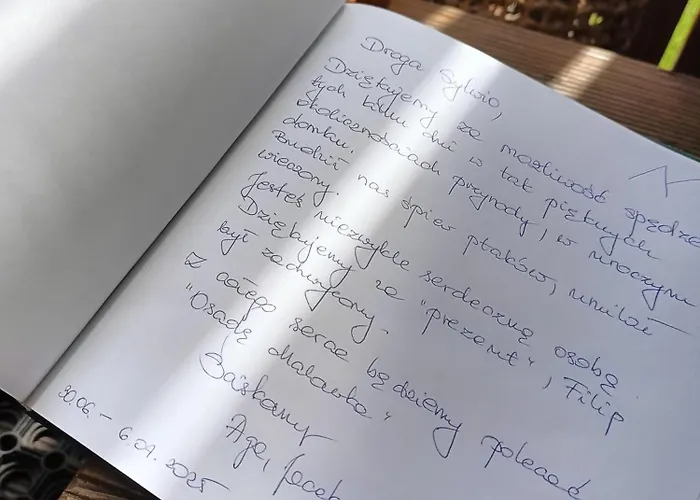 Droga Sylwio,
Dziękujemy za możliwość spędza
tych kilku dni w tak pięknych
okolicznościach przyrody, w uroczym
domku.
Budził nas śpiew ptaków, umilał
wieczory.
Jesteś niezwykle serdeczną osobą.
Dziękujemy za "prezent", Filip
był zachwycony.
Z całego serca będziemy polecać
"Osadę Malawka"
Ściskamy
Aga, Jacek
30.06. - 6.07.2025